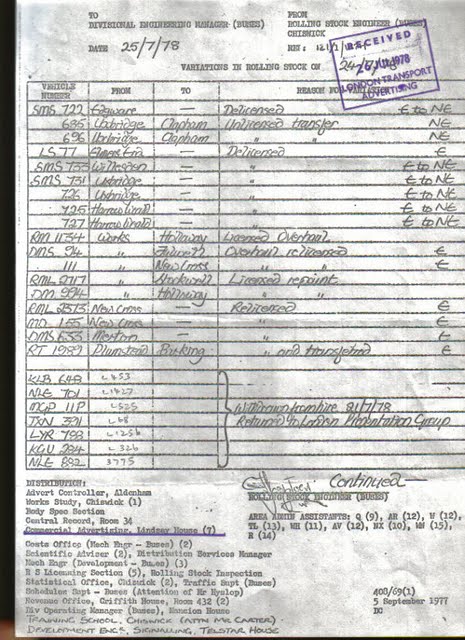 TO FROM
DIVISIONAL ENGINEERING MANAGER (BUSES) ROLLING STOCK ENGINEER (BUSES)
CHISWICK
DATE 25/7/78 REF:
RECEIVED
JUL 1978
LONDON TRANSPORT
ADVERTISING
VARIATIONS IN ROLLING STOCK ON 24/7/78
VEHICLE NUMBER FROM TO REASON FOR VARIATION
SMS 722 Edgware — Delicensed E to NE
685 Uxbridge Clapham Unlicensed transfer NE
696 Uxbridge Clapham " " NE
LS 77 — Delicensed E
SMS 733 Willesden — " E to NE
SMS 731 Uxbridge — " E to NE
726 Uxbridge — " E to NE
725 Harrow Weald — " E to NE
727 Harrow Weald — " E to NE
RM 1734 Works Holloway Licensed Overhaul
DMS 94 " Overhaul relicensed E
111 " New Cross " " E
RML 2717 " Stockwell Licensed repaint
DM 994 " Holloway " "
RML 2373 New Cross — Relicensed E
MD 155 New Cross — " E
DMS 633 Merton — " E
RT 1989 Plumstead Barking " and transferred E
KLB 648 L453
NLE 701 L1427
MGP 11P L525
TXN 321
LYR 793 L1256
KGU 284 L326
NLE 882 3775
Withdrawn from hire 21/7/78
Returned to London Presentation Group
Continued —
DISTRIBUTION: ROLLING STOCK ENGINEER (BUSES)
Advert Controller, Aldenham
Works Study, Chiswick (1) AREA ADMIN ASSISTANTS: Q (9), AR (12), W (12),
Body Spec Section TL (13), WH (11), AV (12), NX (10), WN (15),
Central Record, Room 34 R (14)
Commercial Advertising, Lindsey House (7)
Costs Office (Mech Engr - Buses) (2)
Scientific Adviser (2), Distribution Services Manager
Mech Engr (Development - Buses) (3)
R S Licensing Section (5), Rolling Stock Inspection
Statistical Office, Chiswick (2), Traffic Supt (Buses)
Schedules Supt - Buses (Attention of Mr Hyslop) 400/69(1)
Revenue Office, Griffith House, Room 432 (2) 5 September 1977
Div Operating Manager (Buses), Mansion House DC
TRAINING SCHOOL, CHISWICK (ATTN MR. CARTER)
DEVELOPMENT ENG'S, SIGNALLING, TELSTAR HOUSE